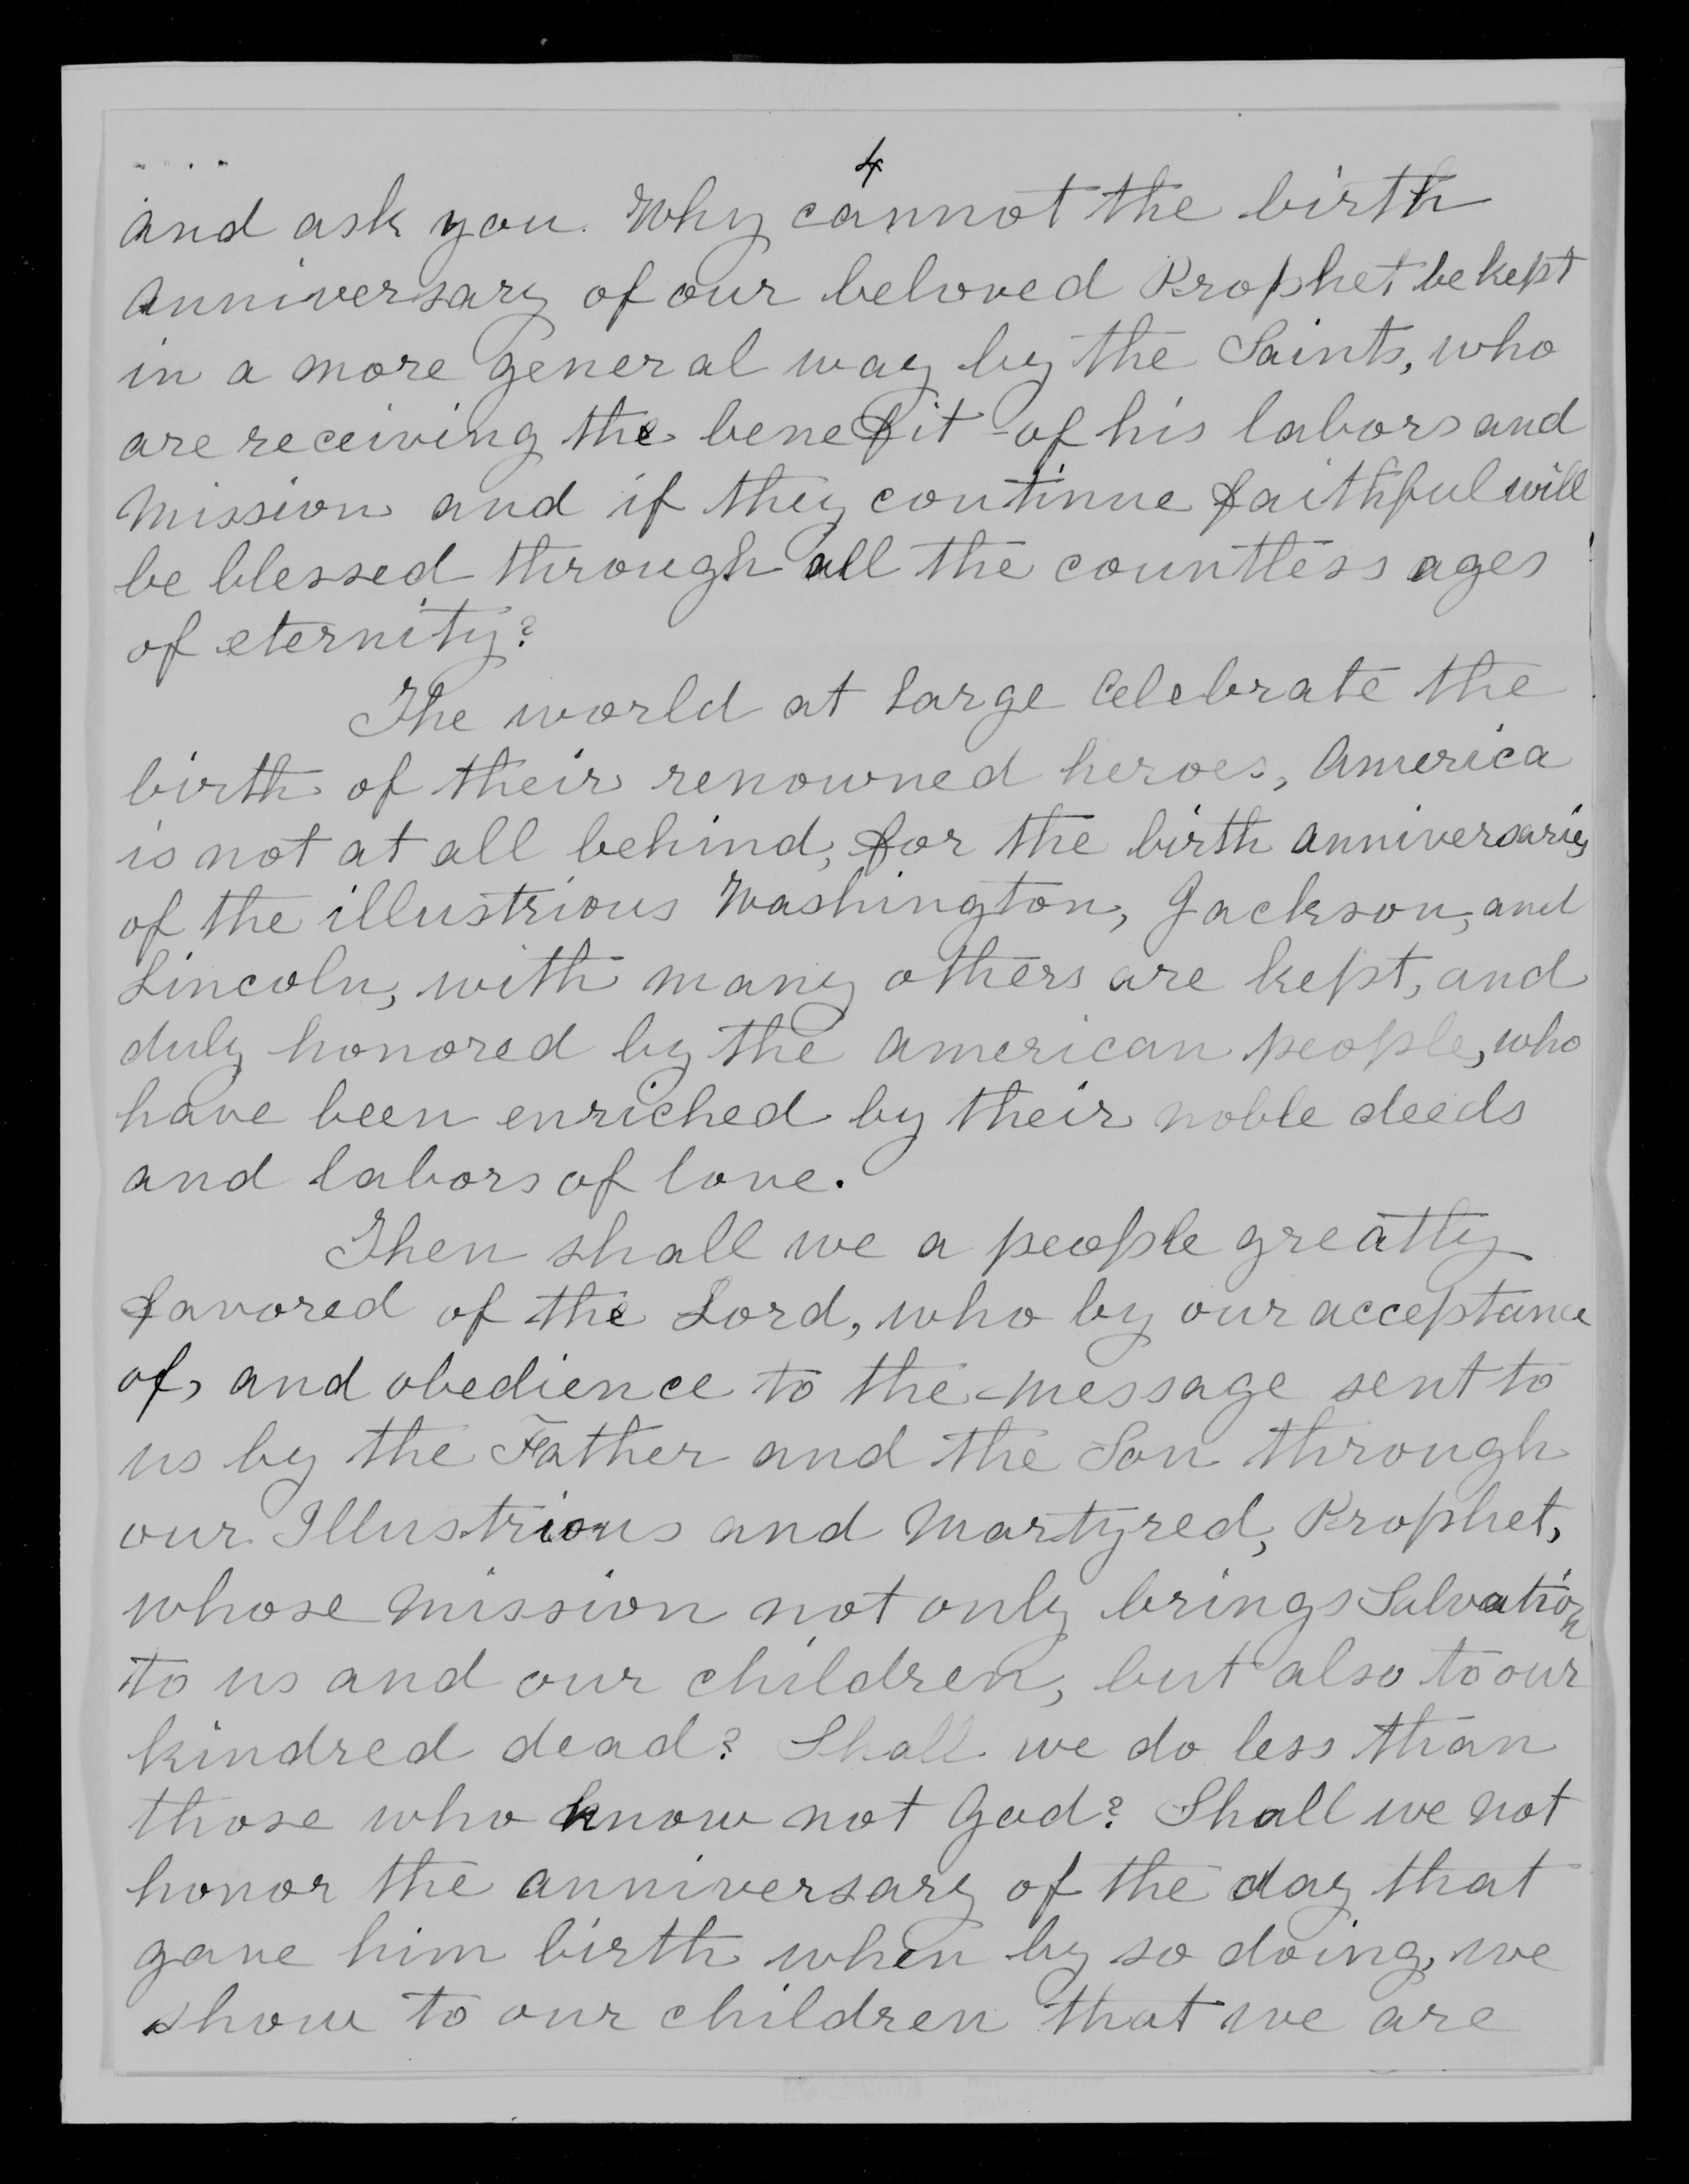 4
and ask you. Why cannot the birth
anniversary of our beloved Prophet be kept
in a more general way by the Saints, who
are receiving the benefit of his labors and
mission and if they continue faithful will
be blessed through all the countless ages
of eternity?
The world at large celebrate the
birth of their renowned heroes, America
is not at all behind, for the birth anniversaries
of the illustrious Washington, Jackson, and
Lincoln, with many others are kept, and
duly honored by the American people, who
have been enriched by their noble deeds
and labors of love.
Then shall we a people greatly
favored of the Lord, who by our acceptance
of, and obedience to the message sent to
us by the Father and the Son through
our Illustrious and Martyred, Prophet,
whose mission not only brings Salvation
to us and our children, but also to our
kindred dead? Shall we do less than
those who know not God? Shall we not
honor the anniversary of the day that
gave him birth when by so doing, we
show to our children that we are